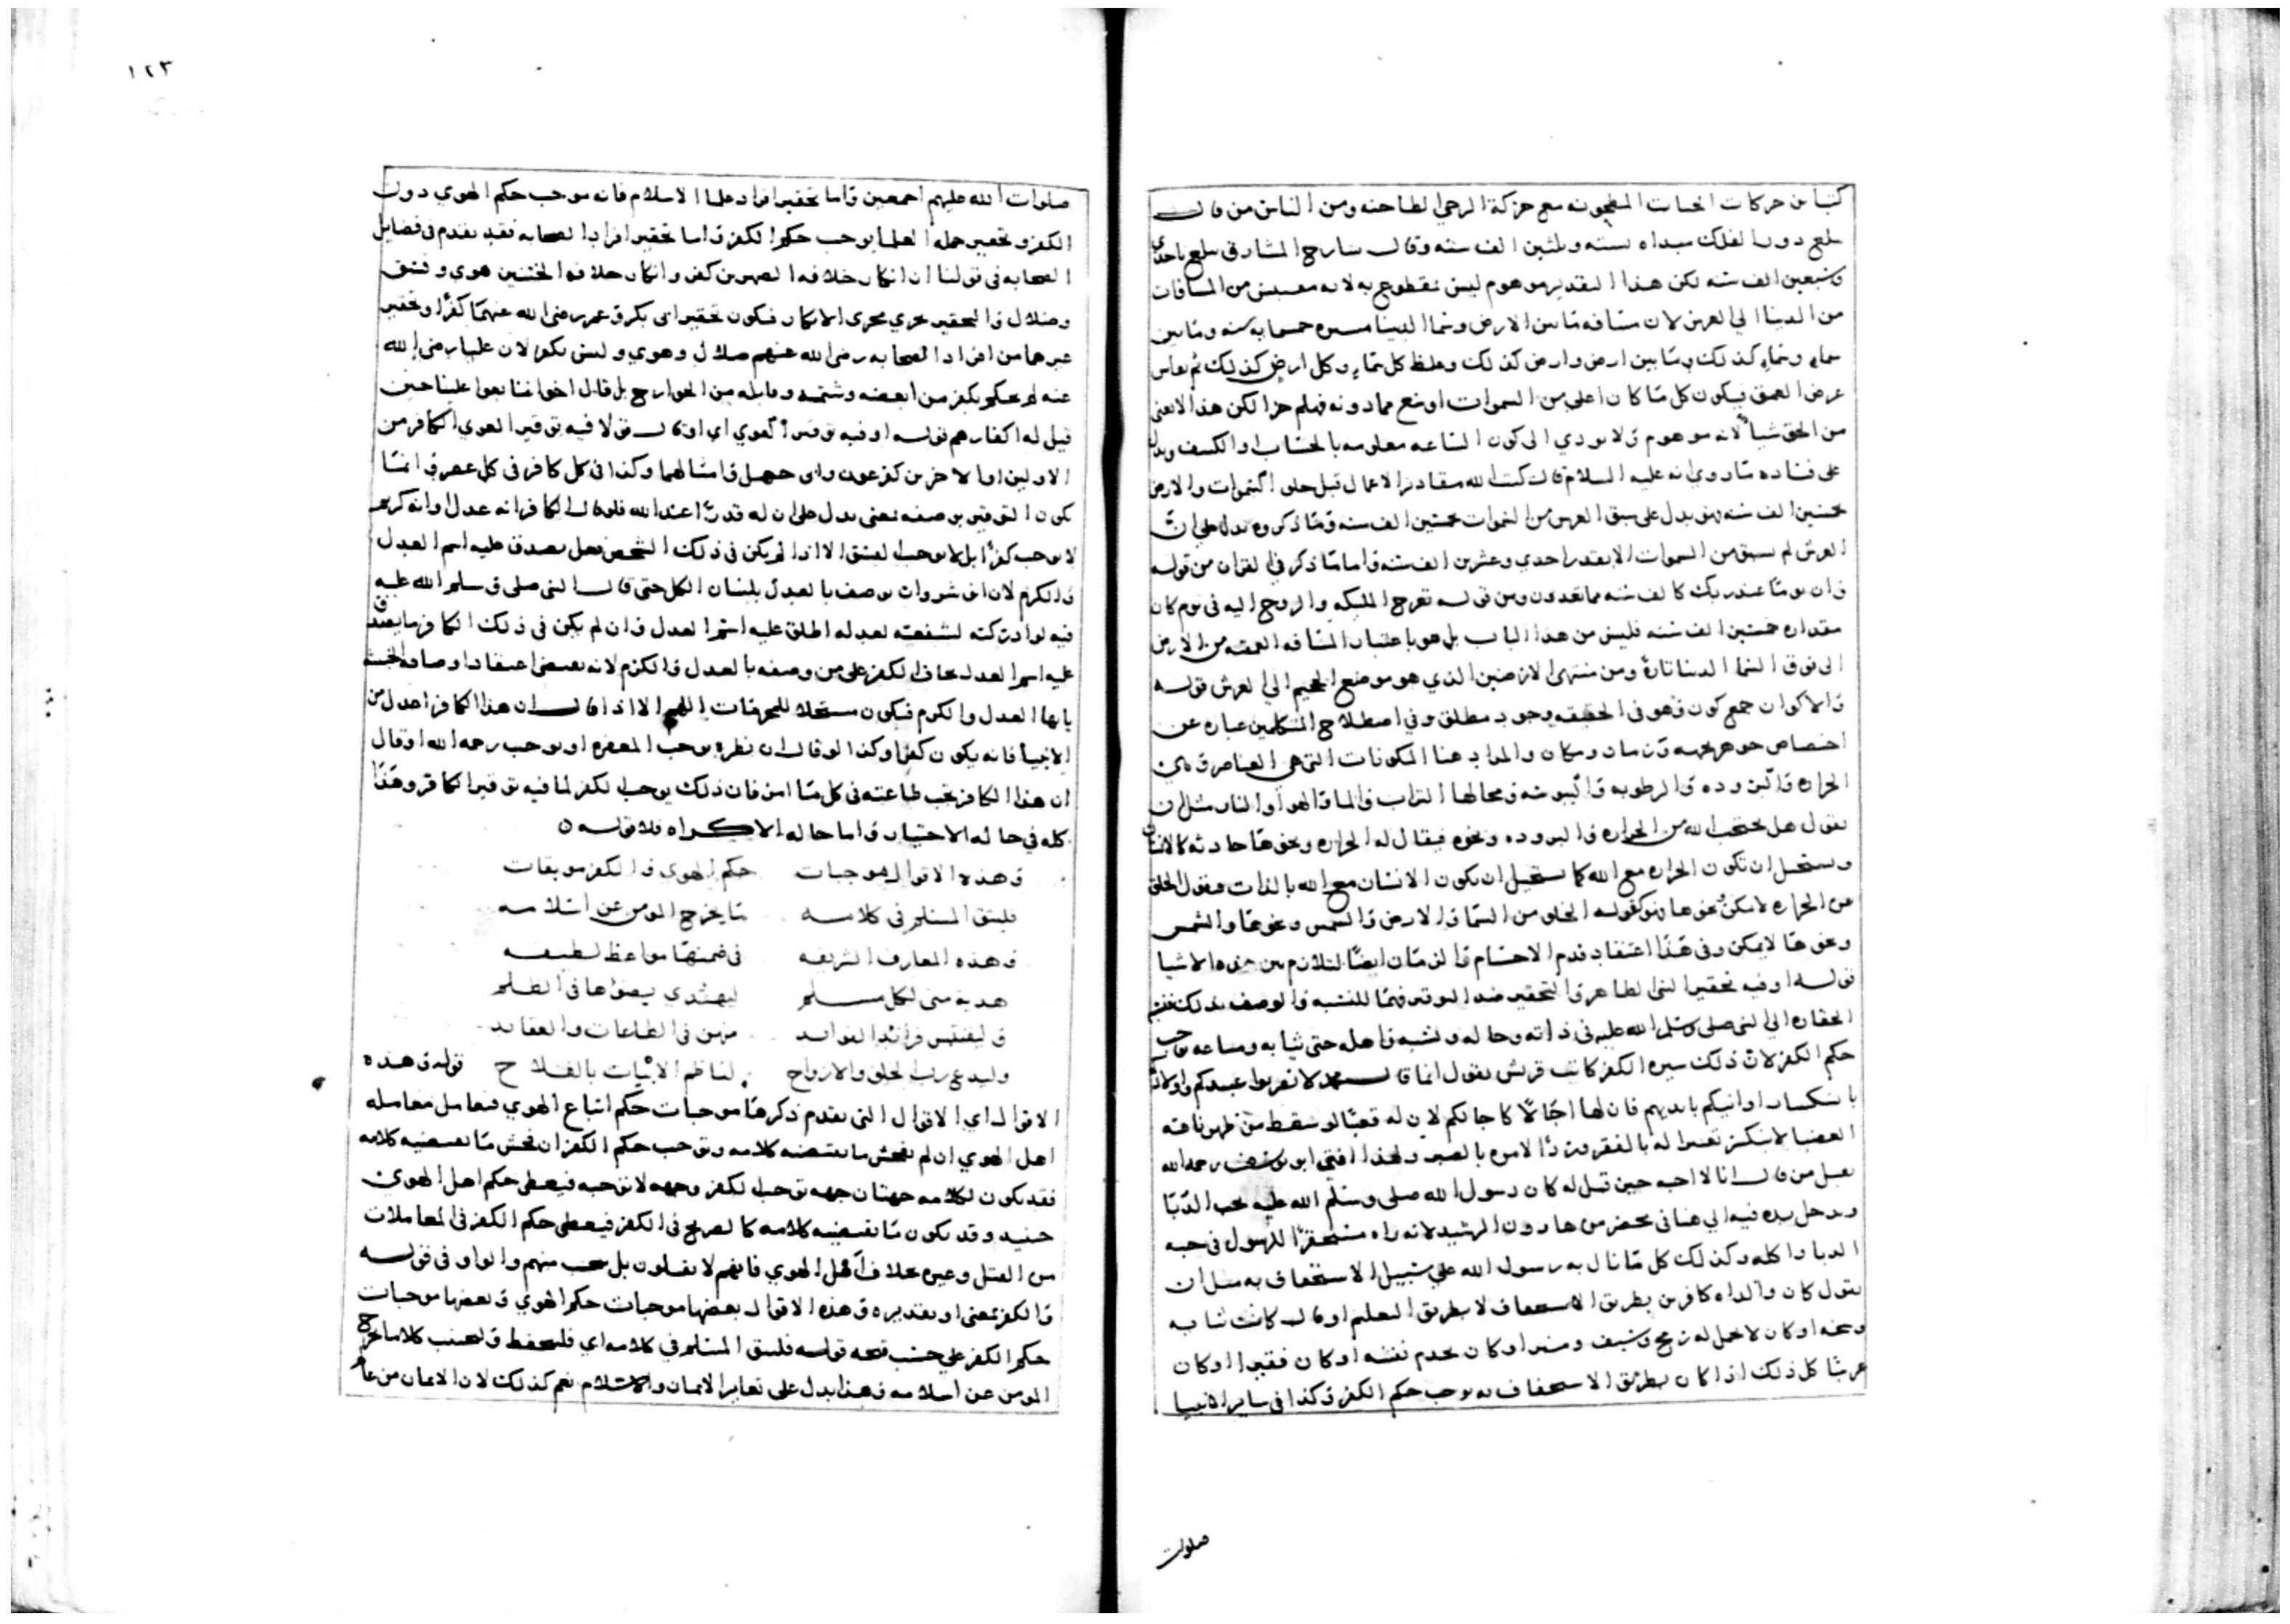 كتباين حركات الحبات المطحونه مع حركة الرحي الطاحنه ومن الناس من قال
سلع دور الفلك مبداه لسته وثلثين الف سنه وقال شارح المشارق سلع باحدي
وسبعين الف سنه لكن هذا التقدير موهوم ليس بمقطوع به لانه من المسافات
من الدنيا الي العرش لان مسافه ما بين الارض وسما الدنيا مسيره خمسمايه سنه وما بين
سماء وسماء كذلك وما بين ارض وارض كذلك وغلظ كل سماء وكل ارض كذلك ثم يقاس
عرض العمق فيكون كل ما كان اعلي من السموات اوسع مما دونه فهلم جرا لكن هذا لا يغني
من الحق شيأ لانه موهوم ولا يودي الى كون الساعه معلومه بالحساب او الكسف ويدل
على فساده ما روي انه عليه السلام قال كتب الله مقادير الاعمال قبل خلق السموات والارض
بخمسين الف سنه وهو يدل على سبق العرش من السموات بخمسين الف سنه وما ذكروه يدل على ان
العرش لم يسبق من السموات الا بقدر احدي وعشرين الف سنه واما ما ذكر في القران من قوله
وان يوما عند ربك كالف سنه مما تعدون ومن قوله تعرج المليكه والروح اليه في يوم كان
مقداره خمسين الف سنه فليس من هذا الباب بل هو باعتبار المسافه من الارض
الى فوق السما الدنيا تارة ومن منتهى الارضين الذي هو موضع الجحيم الي العرش قوله
والاكوان جمع كون وهو في الحقيقه وجود مطلق وفي اصطلاح المتكلمين عباره عن
اختصاص جوهر بجهه وزمان ومكان والمراد هنا المكونات التي هي العناصر وهي
الحراره والبروده والرطوبه واليبوسه ومحالها التراب والما والهوا والنار مثل ان
يقول هل يحتجب الله من الحراره والبروده ونحوه فيقال له الحراره ونحوها حادثه كالانسان
ويستحيل ان تكون الحراره مع الله كما يستحيل ان يكون الانسان مع الله بالذات فيقول الخلق
عن الحراره لا يمكن ونحوها وهو كقوله الخلق من السما والارض والشمس ونحوها والشمس
ونحوها لا يمكن وفي هذا اعتقاد قدم الاجسام والزمان ايضا لتلازم بين هذه الاشيا
قوله اوفيه تحقير النبى الطاهر والتحقير ضد التوقير فهما للنسبه والوصف بذلك
الحقاره الي النبى صلى وسلم الله عليه في ذاته وحاله ونسبه واهله حتى ثيابه ومتاعه
حكم الكفر لان ذلك سيره الكفر كانت قريش يقول انما قال محمد لا تضربوا عبيدكم
بانكسار اوانيكم بايديهم فان لها اجالا كاجالكم لان له قعبا لو سقط من ظهر ناقته
العضبا لا ينكسر تعييرا له بالفقر وردا لامره بالصبر ولهذا افتى ابو يوسف رحمه الله
بقتل من قال انا لا احبه حين قيل له كان رسول الله صلى وسلم الله عليه يحب الدبا
ويدخل يده فيه الى هنا في محضر من هارون الرشيد لانه راه مستحقرا للرسول في حبه
الدبا واكله وكذلك كل ما نال به رسول الله علي سبيل الاستخفاف به مثل ان
يقول كان والداه كافرين بطريق الاستخفاف لا بطريق التعليم او قال كانت ثيابه
وسخه او كان لا يحمل له رمح وسيف ومنبر او كان يخدم نفسه او كان فقيرا او كان
عريانا كل ذلك اذا كان بطريق الاستخفاف به يوجب حكم الكفر وكذا في ساير الانبيا
صلوات
١٢٣
صلوات الله عليهم اجمعين واما تحقير افراد علما الاسلام فانه موجب حكم الهوي دون
الكفر وتحقير جمله العلما يوجب حكم الكفر واما تحقير افراد الصحابه فقد تقدم في فضايل
الصحابه في قولنا ان انكار خلافه الصهرين كفر وانكار خلافه الختنين هوي وفسق
وضلال والتحقير يجري مجرى الانكار فيكون تحقير ابى بكر وعمر رضى الله عنهما كفرا وتحقير
غيرهما من افراد الصحابه رضى الله عنهم ضلال وهوي وليس بكفر لان عليا رضى الله
عنه لم يحكم بكفر من ابغضه وشتمه وقابله من الخوارج بل قال اخواننا بغوا علينا حين
قيل له اكفار هم قوله اوفيه توقير لغوي اي او قال قولا فيه توقير الغوي الكافر من
الاولين او الاخرين كفرعون وابى جهل وامثالهما وكذا في كل كافر في كل عصر وانما
يكون التوقير بوصفه بمعنى يدل على ان له قدرا عند الله فلو قال الكافر انه عدل او انه كريم
لا يوجب كفرا بل لا يوجب الفسق الا اذا لم يكن في ذلك الشخص فعل يصدق عليه اسم العدل
والكرم لان انوشروان يوصف بالعدل بلسان الكل حتى قال النبى صلى وسلم الله عليه
فيه لو ادركته لشفعته لعدله اطلق عليه اسم العدل وان لم يكن في ذلك الكافر ما يصدق
عليه اسم العدل يخاف الكفر على من وصفه بالعدل والكرم لانه يقتضى اعتقاد اوصافه الخبيثه
بانها العدل والكرم فيكون مستحلا للمحرمات اللهم الا اذا قال ان هذا الكافر اعدل من
الانبيا فانه يكون كفرا وكذا لو قال ان نظره يوجب المغفره او يوجب رحمه الله او قال
ان هذا الكافر يجب طاعته في كل ما امر فان ذلك يوجب الكفر لما فيه توقير الكافر وهذا
كله في حاله الاختيار واما حاله الاكراه فلا قوله
وهذه الاقوال موجبات حكم الهوي والكفر موبقات
فليتق المسلم في كلامه ما يخرج المومن عن اسلامه
وهذه المعارف الشريفه في ضمنها مواعظ لطيفه
هديه منى لكل مسلم ليهتدي بضواها في الظلم
وليقتبس فرائد الفوايد مزين في الطاعات والعقايد
وليدع رب الخلق والارواح لناظم الابيات بالفلاح قوله وهذه
الاقوال اي الاقوال التى تقدم ذكرها موجبات حكم اتباع الهوي فيعامل معامله
اهل الهوي ان لم يفحش ما يقتضيه كلامه وتوجب حكم الكفر ان فحش ما يقتضيه كلامه
فقد يكون لكلامه جهتان جهه توجب الكفر وجهه لا توجبه فيعطى حكم اهل الهوي
حنيد وقد يكون ما يقتضيه كلامه كالصريح في الكفر فيعطى حكم الكفر في المعاملات
من القتل وغيره بخلاف اهل الهوي فانهم لا يقتلون بل منهم والواو في قوله
والكفر بمعنى او تقديره وهذه الاقوال بعضها موجبات حكم الهوي وبعضها موجبات
حكم الكفر على حسب قبحه قوله فليتق المسلم في كلامه اي فليتحفظ وليجتنب كلاما يخرج
المومن عن اسلامه وهذا يدل على تغاير الايمان والاسلام نعم كذلك لان الايمان من